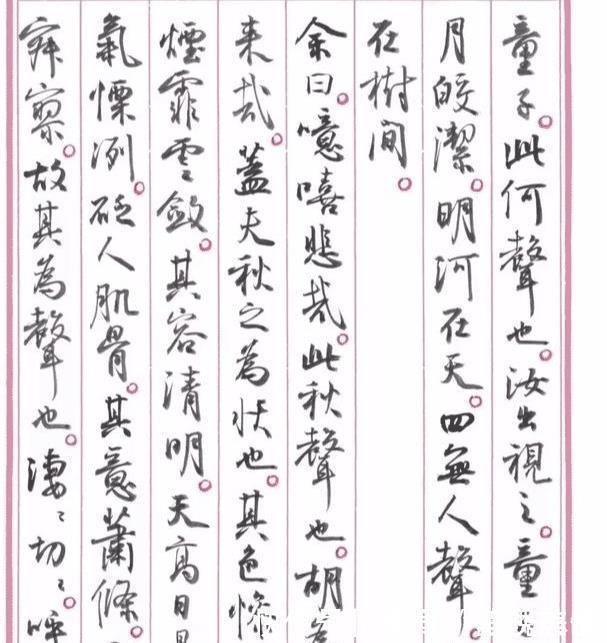 童子。此何聲也。汝出視之。童
月皎潔。明河在天。四無人聲。
在樹間。
余曰。噫嘻悲哉。此秋聲也。胡
来哉。蓋夫秋之為狀也。其色慘
煙霏雲斂。其容清明。天高日
氣慄冽。砭人肌骨。其意蕭條。
寂寥。故其為聲也。淒〻切〻。呼